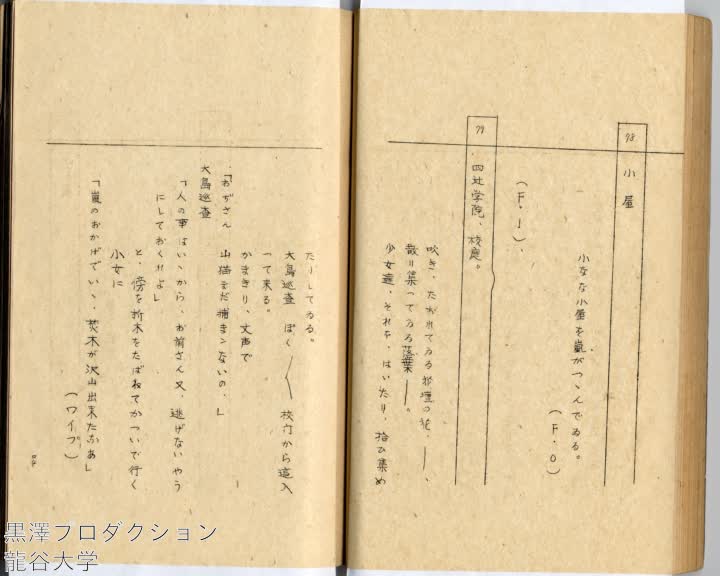 78 小屋
小なな小屋を嵐がつゝんでゐる。
(F・O)
(F・I)、
79 四辻学院、校庭。
吹き、たおれてゐる花壇の花、――、
散り集ってゐる落葉――。
少女達、それを、はいたり、拾ひ集め
たりしてゐる。
大島巡査 ぼく／＼校門から這入
って来る。
かまきり、大声で
「おぢさん 山猫まだ捕まんないの。」
大島巡査
「人の事はいゝから、お前さん又、逃げないやう
にしておくれよ」
と、傍を折木をたばねてかついで行く
少女に
「嵐のおかげでいゝ、焚木が沢山出来たなあ」
(ワイプ)
黒澤プロダクション
龍谷大学